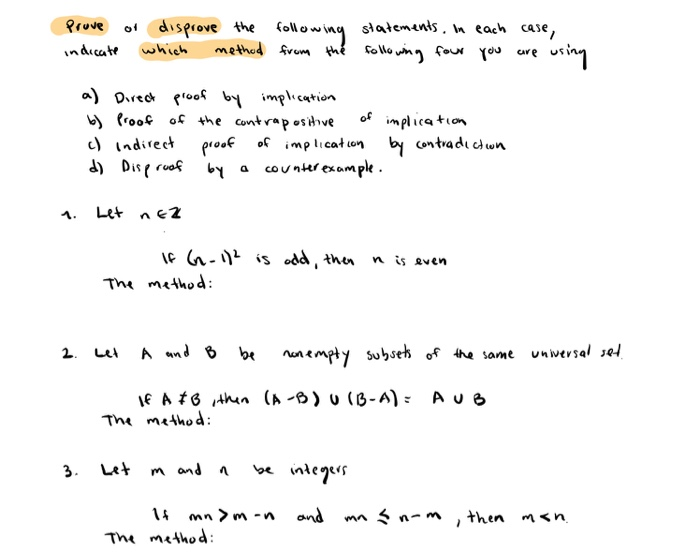 Prove or disprove the following statements. In each case,
indicate which method from the following four you are using
a) Direct proof by implication
b) Proof of the contrapositive of implication
c) Indirect proof of implication by contradiction
d) Disproof by a counterexample.
1. Let n ∈ Z
If (n-1)² is odd, then n is even
The method:
2. Let A and B be nonempty subsets of the same universal set.
If A ≠ B, then (A-B) ∪ (B-A) = A ∪ B
The method:
3. Let m and n be integers
If mn > m-n and mn ≤ n-m, then m<n.
The method: